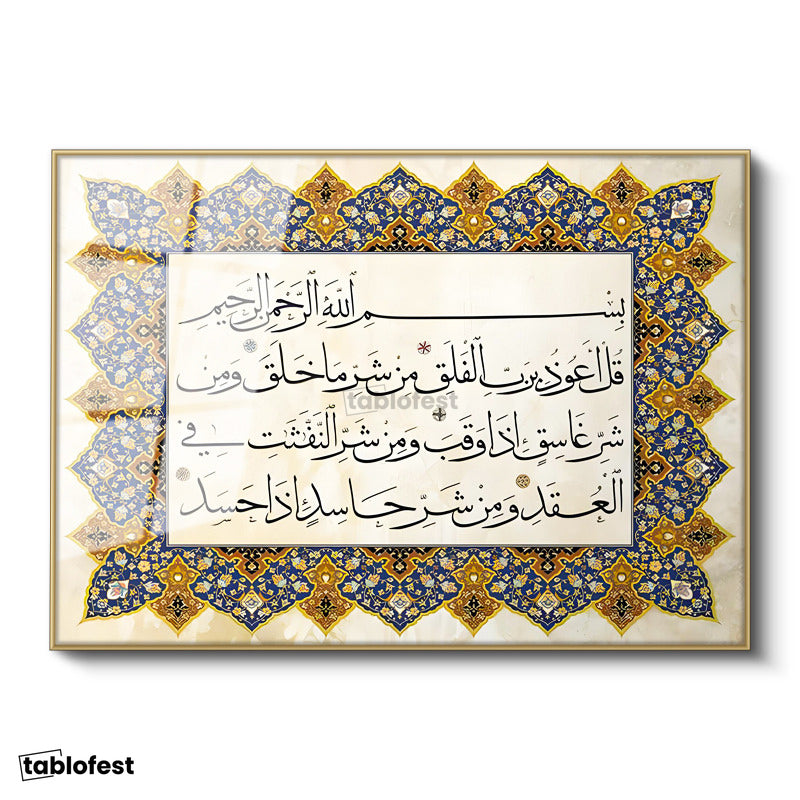 بِسْمِ اللّٰهِ الرَّحْمٰنِ الرَّحِيمِ
قُلْ اَعُوذُ بِرَبِّ الْفَلَقِ مِنْ شَرِّ مَا خَلَقَ وَمِنْ
tablofest
شَرِّ غَاسِقٍ اِذَا وَقَبَ وَمِنْ شَرِّ النَّفَّثٰتِ فِي
الْعُقَدِ وَمِنْ شَرِّ حَاسِدٍ اِذَا حَسَدَ
tablofest